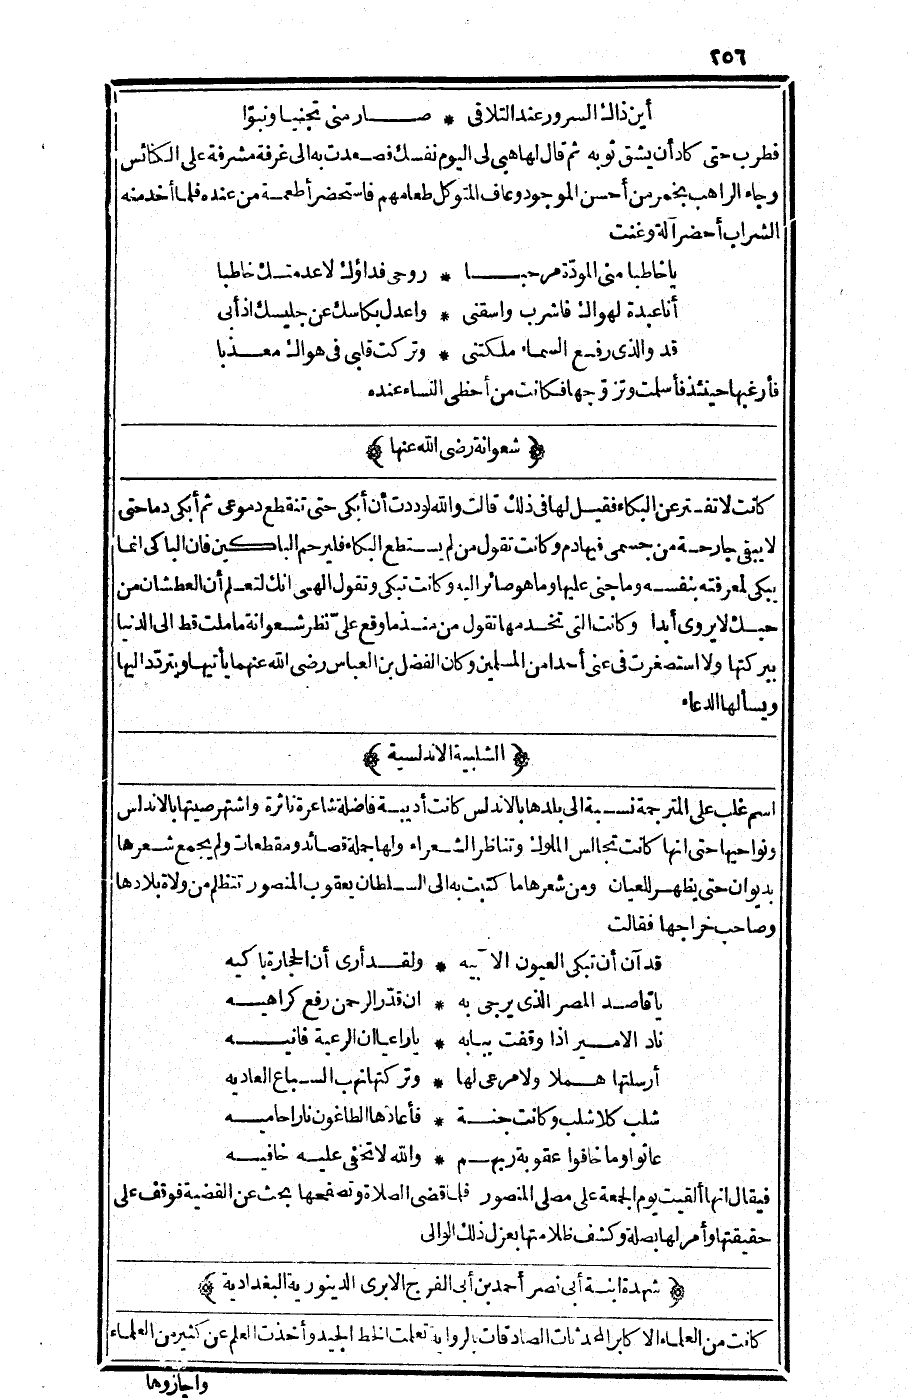 ٢٥٦
أين ذاك السرور عند التلاقى * صار منى تجنبا ونبوّا
فطرب حتى كاد أن يشق ثوبه ثم قال لها هبى لى اليوم نفسك فصعدت به الى غرفة مشرفة على الكنائس
وجاء الراهب بخمر من أحسن الموجود وعاف المتوكل طعامهم فاستحضر أطعمة من عنده فلما أخذ منه
الشراب أحضر آلة وغنت
يا خاطبا منى المودّة مرحبا * روحى فداؤك لا عدمتك خاطبا
أنا عبدة لهواك فاشرب واسقنى * واعدل بكاسك عن جليسك اذ أبى
قد والذى رفع السماء ملكتنى * وتركت قلبى فى هواك معذبا
فأرغبها حينئذ فأسلمت وتزوّجها فكانت من أحظى النساء عنده
﴿ شعوانة رضى الله عنها ﴾
كانت لا تفتر عن البكاء فقيل لها فى ذلك قالت والله لوددت أن أبكى حتى تنقطع دموعى ثم أبكى دما حتى
لا يبقى جارحة من جسمى فيها دم وكانت تقول من لم يستطع البكاء فليرحم الباكين فان الباكى انما
يبكى لمعرفته بنفسه وما جنى عليها وما هو صائر اليه وكانت تبكى وتقول الهى انك لتعلم أن العطشان من
حبك لا يروى أبدا وكانت التى تخدمها تقول من منذ ما وقع علىّ نظر شعوانة ما ملت قط الى الدنيا
ببركتها ولا استصغرت فى عينى أحدا من المسلمين وكان الفضل بن العباس رضى الله عنهما يأتيها ويتردّد اليها
ويسألها الدعاء
﴿ الشلبية الاندلسية ﴾
اسم غلب على المترجمة نسبة الى بلدها بالاندلس كانت أديبة فاضلة شاعرة ناثرة واشتهر صيتها بالاندلس
ونواحيها حتى انها كانت تجالس الملوك وتناظر الشعراء ولها جملة قصائد ومقطعات ولم يجمع شعرها
بديوان حتى يظهر للعيان ومن شعرها ما كتبت به الى السلطان يعقوب المنصور تتظلم من ولاة بلادها
وصاحب خراجها فقالت
قد آن أن تبكى العيون الآبيه * ولقد أرى أن الحجارة باكيه
يا قاصد المصر الذى يرجى به * ان قدّر الرحمن رفع كراهيه
ناد الامير اذا وقفت ببابه * يا راعيا ان الرعية فانيه
أرسلتها هملا ولا مرعى لها * وتركتها نهب السباع العاديه
شلب كلا شلب وكانت جنة * فأعاذها الطاغون نارا حاميه
عاثوا وما خافوا عقوبة ربهم * والله لا تخفى عليه خافيه
فيقال انها ألقيت يوم الجمعة على مصلى المنصور فلما قضى الصلاة وتصفحها بحث عن القضية فوقف على
حقيقتها وأمر لها بصلة وكشف ظلامتها بعزل ذلك الوالى
﴿ شهدة ابنة أبى نصر أحمد بن أبى الفرج الابرى الدينورية البغدادية ﴾
كانت من العلماء الاكابر المحدثات الصادقات بالرواية تعلمت الخط الجيد وأخذت العلم عن كثير من العلماء
واجازوها